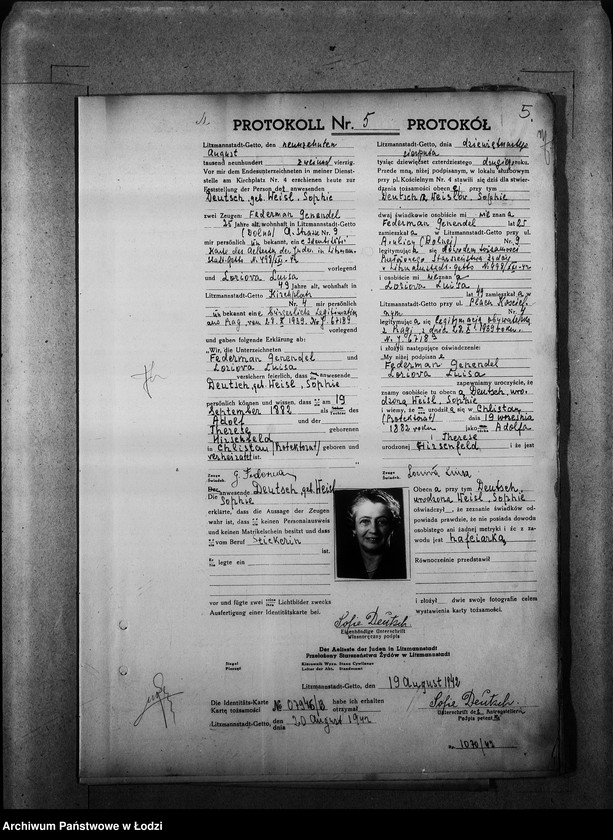 5.
PROTOKOLL Nr. 5 PROTOKÓŁ
Litzmannstadt-Getto, den neunzehnten
August
tausend neunhundert zweiund vierzig.
Vor mir dem Endesunterzeichneten in meiner Dienst-
stelle am Kirchplatz Nr. 4 erschienen heute zur
Feststellung der Person der anwesenden
Deutsch, geb. Weisl, Sophie
zwei Zeugen: Federman Genendel
25 Jahre alt, wohnhaft in Litzmannstadt-Getto
(Dolna) A. Strasse Nr. 9
mir persönlich bekannt, eine Identitäts
Karte des Aeltesten der Juden in Litzmann.
vorlegend
und Loriova Luisa
49 Jahre alt, wohnhaft in
Litzmannstadt-Getto Kirchplatz
Nr. 4 mir persönlich
un bekannt eine bürgerliche Legitimation
aus Prag, von 28.8 1939. No 67189
vorlegend
und gaben folgende Erklärung ab:
"Wir, die Unterzeichneten
Federman Genendel und
Loriova Luisa
versichern feierlich, dass anwesende
Deutsch, geb. Weisl, Sophie
persönlich können und wissen, dass am 19
September 1882 als
Adolf und der
Therese geborenen
Hirschfeld
in Chlistau (Protektorat) geboren und
verheiratet ist.
G. Federman
anwesende Deutsch, geb. Weisl
Die Sophie
erklärte, dass die Aussage der Zeugen
wahr ist, dass keinen Personalausweis
und keinen Matrikelschein besitzt und dass
vom Beruf Stickerin
ist.
legte ein
vor und fügte zwei Lichtbilder zwecks
Ausfertigung einer Identitätskarte bei.
Litzmannstadt-Getto, dnia dziewiętnastego
sierpnia
tysiąc dziewięćset czterdziestego drugiego roku.
Przede mną, niżej podpisanym, w lokalu służbowym
przy pl. Kościelnym Nr. 4 stawili się dziś dla stwier-
dzenia tożsamości obecnej przy tym
Deutsch z Weislów, Sophie
dwaj świadkowie osobiście mi nie znana
Federman Genendel lat 25
zamieszkała w Litzmannstadt-Getto przy ul.
A ulicy (Dolnej) Nr. 9
legitymująca się dowodem tożsamości
Przełożonego Starszeństwa Żydów
w Litzmannstadt-Getto
i osobiście mi nieznana
Loriova Luisa
lat 49 zamieszkała w
Litzmannstadt-Getto przy ul. Placu Kościel-
nym Nr. 4
legitymująca się legitymacją obywatelską
z Prag, z dnia 28.8 1939 roku.
N. 67189
i złożyli następujące oświadczenie:
"My niżej podpisane
Federman Genendel
Loriova Luisa
zapewniamy uroczyście, że
znamy osobiście tu obecną Deutsch, uro-
dzoną Weisl, Sophie
i wiemy, że urodziła się w Chlistau
(Protektorat) dnia 19 września
1882 roku jako Adolfa
i Therese
urodzonej Hirschfeld i że jest
Loriova Luisa
Obecna przy tym Deutsch,
urodzona Weisl, Sophie
oświadczył, że zeznanie świadków od-
powiada prawdzie, że nie posiada dowodu
osobistego ani żadnej metryki i że z za-
wodu jest hafciarką
Równocześnie przedstawił
i złożył dwie swoje fotografie celem
wystawienia karty tożsamości.
Sofie Deutsch
Eigenhändige Unterschrift
Własnoręczny podpis
Der Aelteste der Juden in Litzmannstadt
Przełożony Starszeństwa Żydów w Litzmannstadt
Siegel
Pieczęć
Litzmannstadt-Getto, den 19 August 1942
Die Identitäts-Karte
Kartę tożsamości № 07946/B habe ich erhalten
otrzymał
Litzmannstadt-Getto, den
dnia 20 August 1942
Sofie Deutsch.
Unterschrift des Antragstellers
Podpis petenta
1070/42
Archiwum Państwowe w Łodzi